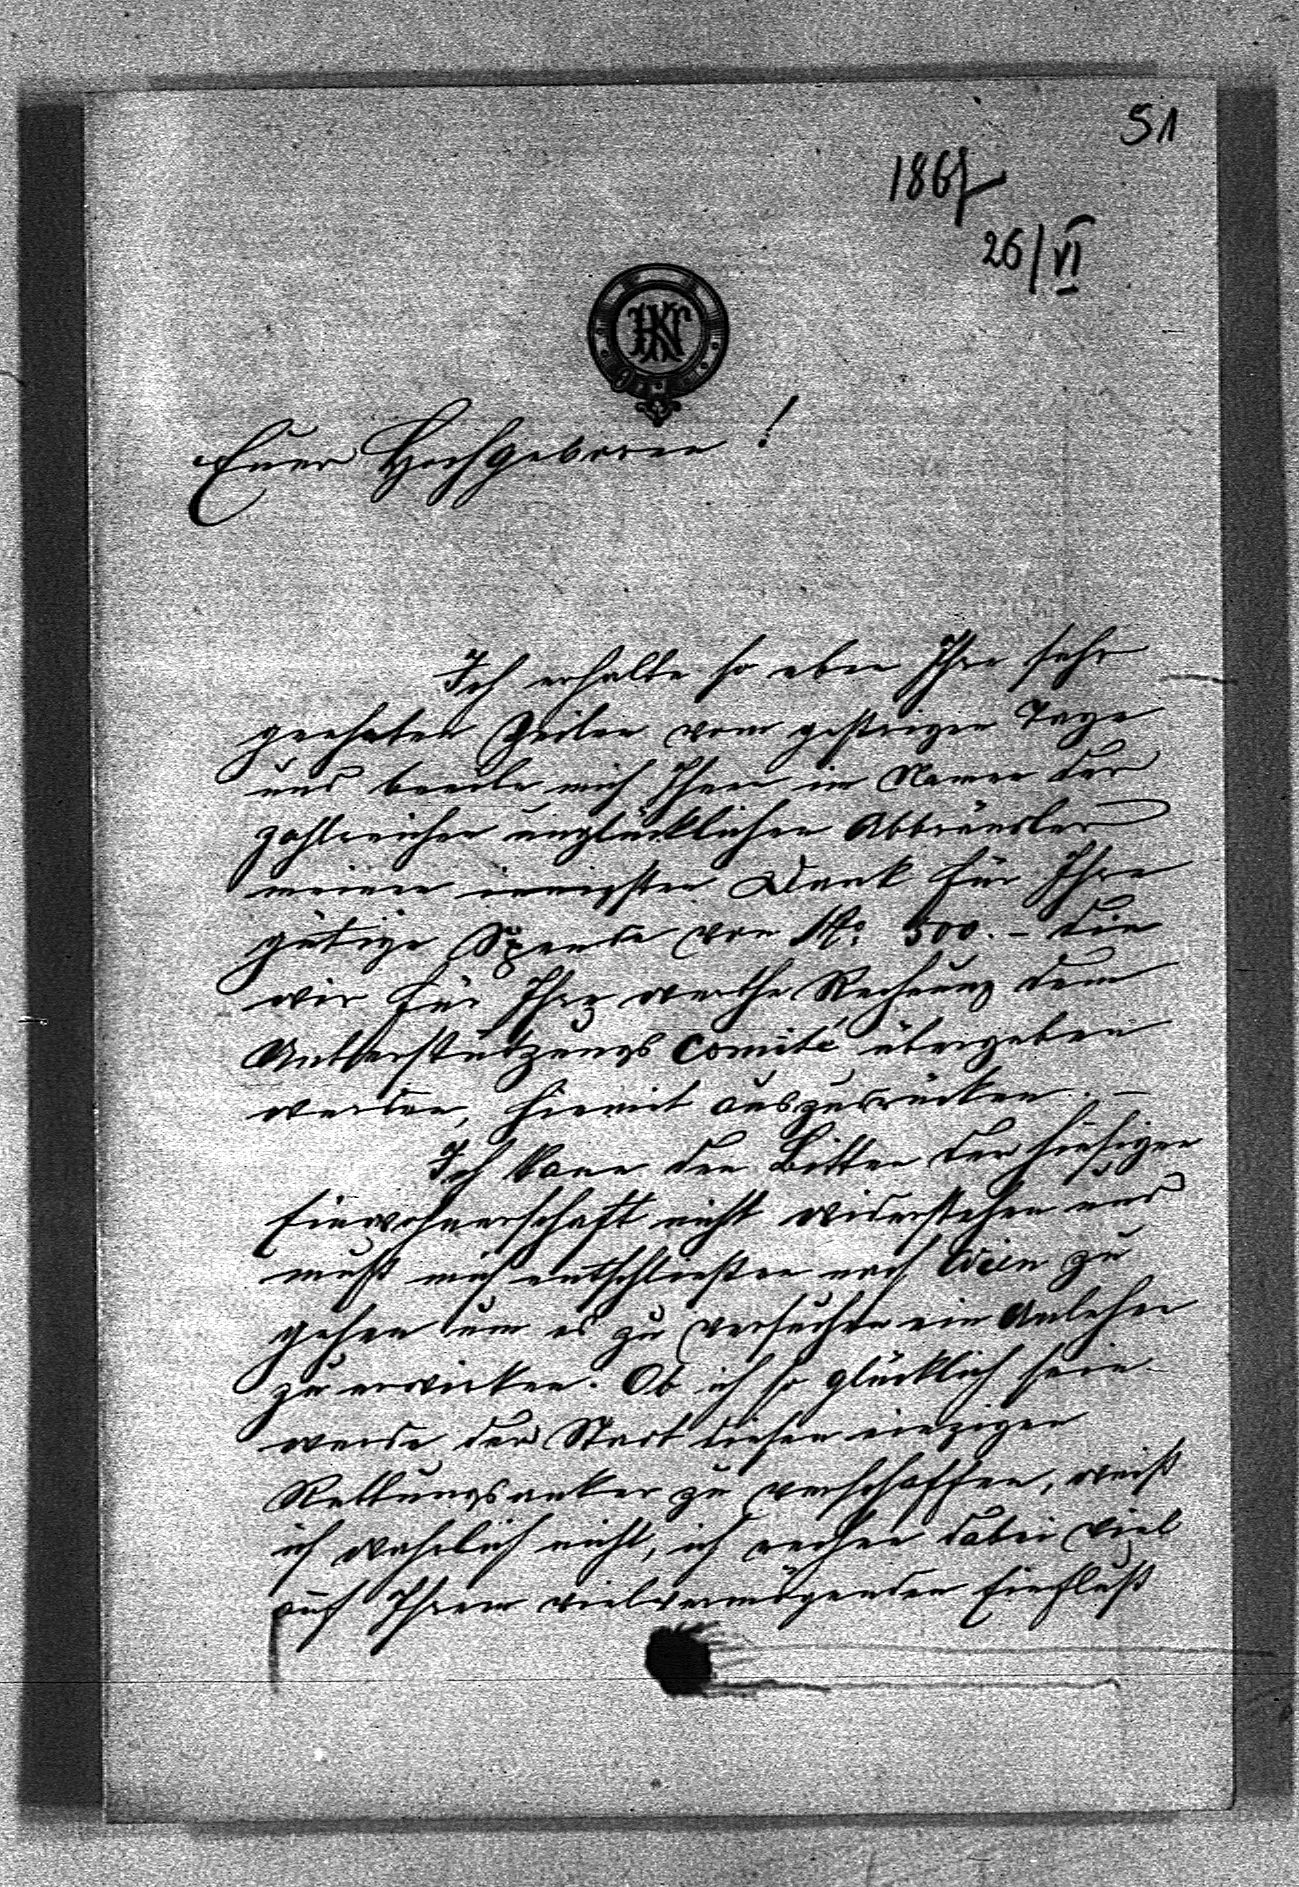 51
1867
26/VI
HN
Euer Hochgeboren!
Ich erhalte so eben Ihre sehr
geehrten Zeilen vom gestrigen Tage
und beeile mich Ihnen im Namen der
zahlreichen unglücklichen Abbrändler
meinen innigsten Dank für Ihre
gütige Spende von 500.- die
wir für Ihre werthe Rechnung dem
Unterstützungs Comité übergeben
werden, hiemit auszudrücken. –
Ich kann den Bitten der hiesigen
Einwohnerschaft nicht widerstehen und
muß mich entschließen nach Wien zu
gehen um es zu versuchen ein Anlehen
zu erwirken. Ob ich so glücklich sein
werde der Stadt diesen einzigen
Rettungsanker zu verschaffen, weiß
ich wahrlich nicht, ich rechne dabei viel
auf Ihren vielvermögenden Einfluß